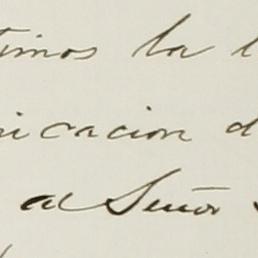 timos la l
nicacion d
al Señor